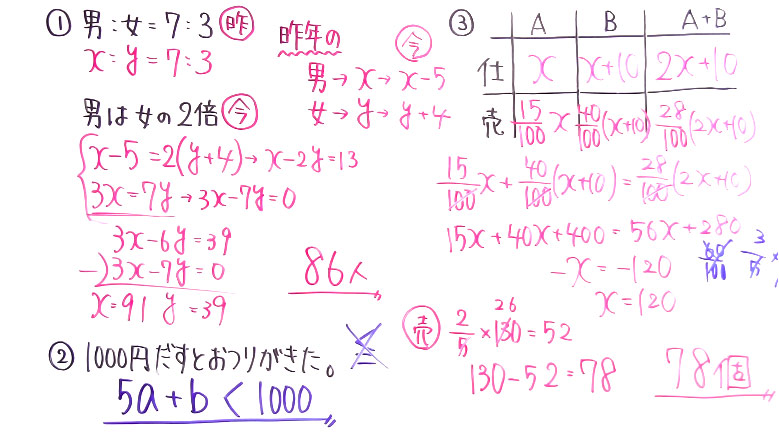 ① 男:女=7:3 昨
x:y=7:3
昨年の 今
男→x→x-5
女→y→y+4
男は女の2倍 今
x-5=2(y+4)→x-2y=13
3x=7y→3x-7y=0
3x-6y=39
-)3x-7y=0
x=91 y=39
86人
② 1000円だすとおつりがきた。
5a+b<1000
③ A B A+B
仕 x x+10 2x+10
売 15/100 x 40/100(x+10) 28/100(2x+10)
15/100 x+40/100(x+10)=28/100(2x+10)
15x+40x+400=56x+280
60/100 3/5 ×
-x=-120
x=120
売 2/5×130=52
26
130-52=78
78個